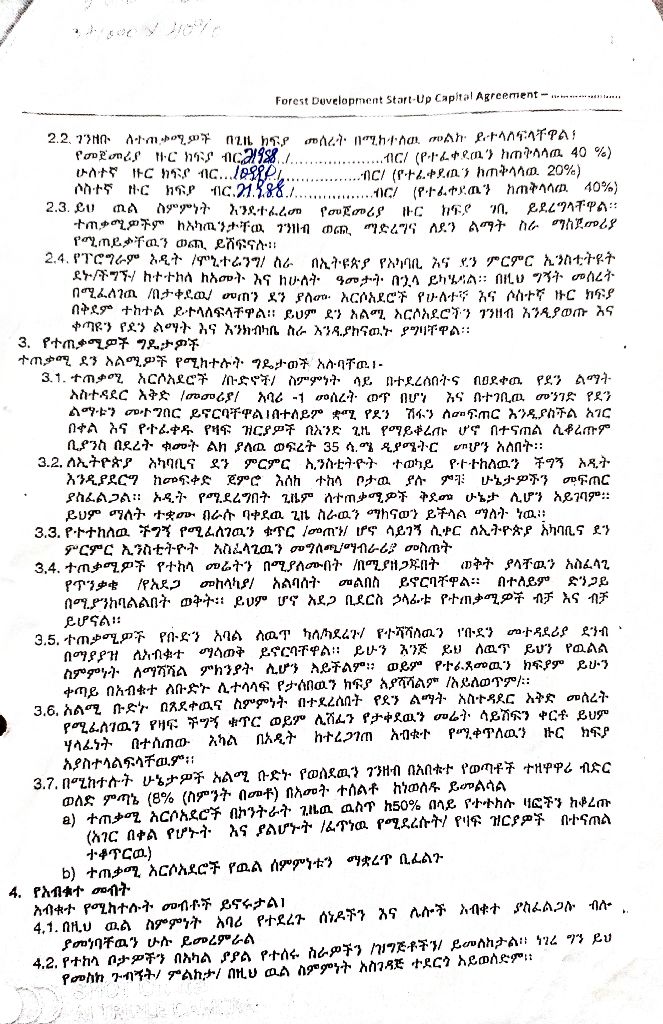 Forest Development Start-Up Capital Agreement – ......................
2.2. ገንዘቡ ለተጠቃሚዎች በጊዜ ክፍያ መሰረት በሚከተለዉ መልኩ ይተላለፍላቸዋል፤
የመጀመሪያ ዙር ክፍያ ብር 21988 /........................ብር/ (የተፈቀደዉን ከጠቅላላዉ 40 %)
ሁለተኛ ዙር ክፍያ ብር... /........................ብር/ (የተፈቀደዉን ከጠቅላላዉ 20%)
ሶስተኛ ዙር ክፍያ ብር.21988 /........................ብር/ (የተፈቀደዉን ከጠቅላላዉ 40%)
2.3. ይህ ዉል ስምምነት እንደተፈረመ የመጀመሪያ ዙር ክፍያ ገቢ ይደረግላቸዋል።
ተጠቃሚዎችም ከአካዉንታቸዉ ገንዘብ ወጪ ማድረግና ለደን ልማት ስራ ማስጀመሪያ
የሚጠይቃቸዉን ወጪ ይሸፍናሉ።
2.4. የፕሮግራም ኦዲት /ሞኒተሪንግ/ ስራ በኢትዩጵያ የአካባቢ እና ደን ምርምር ኢንስቲትዩት
ደኑ/ችግኙ/ ከተተከለ ከአመት እና ከሁለት ዓመታት በኋላ ይካሄዳል። በዚህ ግኝት መሰረት
በሚፈለገዉ /በታቀደዉ/ መጠን ደን ያለሙ አርሶአደሮች የሁለተኛ እና ሶስተኛ ዙር ክፍያ
በቅደም ተከተል ይተላለፍላቸዋል። ይህም ደን አልሚ አርሶአደሮችን ገንዘብ እንዲያወጡ እና
ቀጣዩን የደን ልማት እና እንክብካቤ ስራ እንዲያከናዉኑ ያግዛቸዋል።
3. የተጠቃሚዎች ግዴታዎች
ተጠቃሚ ደን አልሚዎች የሚከተሉት ግዴታወች አሉባቸዉ፤-
3.1. ተጠቃሚ አርሶአደሮች /ቡድኖች/ ስምምነት ላይ በተደረሰበትና በፀደቀዉ የደን ልማት
አስተዳደር እቅድ /መመሪያ/ አባሪ -1 መሰረት ወጥ በሆነ እና በተገቢዉ መንገድ የደን
ልማቱን መተግበር ይኖርባቸዋል፤በተለይም ቋሚ የደን ሽፋን ለመፍጠር እንዲያስችል አገር
በቀል እና የተፈቀዱ የዛፍ ዝርያዎች በአንድ ጊዜ የማይቆረጡ ሆኖ በተናጠል ሲቆረጡም
ቢያንስ በደረት ቁመት ልክ ያለዉ ወፍረት 35 ሳ.ሜ ዲያሜትር መሆን አለበት።
3.2. ለኢትዮጵያ አካባቢና ደን ምርምር ኢንስቲትዮት ተወካይ የተተከለዉን ችግኝ ኦዲት
እንዲያደርግ ከመፍቀድ ጀምሮ እስከ ተከላ ቦታዉ ያሉ ምቹ ሁኔታዎችን መፍጠር
ያስፈልጋል። ኦዲት የሚደረግበት ጊዜም ለተጠቃሚዎች ቅድመ ሁኔታ ሊሆን አይገባም።
ይህም ማለት ተቋሙ በራሱ ባቀደዉ ጊዜ ስራዉን ማከናወን ይችላል ማለት ነዉ።
3.3. የተተከለዉ ችግኝ የሚፈለገዉን ቁጥር /መጠን/ ሆኖ ሳይገኝ ሲቀር ለኢትዮጵያ አካባቢና ደን
ምርምር ኢንስቲትዮት አስፈላጊዉን መግለጫ/ማብራሪያ መስጠት
3.4. ተጠቃሚዎች የተከላ መሬትን በሚያለሙበት /በሚያዘጋጁበት ወቅት ያላቸዉን አስፈላጊ
የጥንቃቄ /የአደጋ መከላካያ/ አልባሳት መልበስ ይኖርባቸዋል። በተለይም ድንጋይ
በሚያንከባልልበት ወቅት። ይህም ሆኖ አደጋ ቢደርስ ኃላፊቱ የተጠቃሚዎች ብቻ እና ብቻ
ይሆናል።
3.5. ተጠቃሚዎች የቡድን አባል ለዉጥ ካለ/ካደረጉ/ የተሻሻለዉን የቡድን መተዳደሪያ ደንብ
በማያያዝ ለአብቁተ ማሳወቅ ይኖርባቸዋል። ይሁን እንጅ ይህ ለዉጥ ይህን የዉልል
ስምምነት ለማሻሻል ምክንያት ሊሆን አይችልም። ወይም የተፈጸመዉን ክፍያም ይሁን
ቀጣይ በአብቁተ ለቡድኑ ሊተላላፍ የታሰበዉን ክፍያ አያሻሽልም /አይለወጥም/።
3.6. አልሚ ቡድኑ በጸደቀዉና ስምምነት በተደረሰበት የደን ልማት አስተዳደር እቅድ መሰረት
የሚፈለገዉን የዛፍ ችግኝ ቁጥር ወይም ሊሸፈን የታቀደዉን መሬት ሳይሸፍን ቀርቶ ይህም
ሃላፊነት በተሰጠዉ አካል በኦዲት ከተረጋገጠ አብቁተ የሚቀጥለዉን ዙር ክፍያ
አያስተላልፍላቸዉም።
3.7. በሚከተሉት ሁኔታዎች አልሚ ቡድኑ የወሰደዉን ገንዘብ በአበቁተ የወጣቶች ተዘዋዋሪ ብድር
ወለድ ምጣኔ (8% (ስምንት በመቶ) በአመት ተሰልቶ ከነወለዱ ይመልሳል
a) ተጠቃሚ አርሶአደሮች በኮንትራት ጊዜዉ ዉስጥ ከ50% በላይ የተተከሉ ዛፎችን ከቆረጡ
(አገር በቀል የሆኑት እና ያልሆኑት /ፈጥነዉ የሚደረሱት/ የዛፍ ዝርያዎች በተናጠል
ተቆጥርዉ)
b) ተጠቃሚ አርሶአደሮች የዉል ስምምነቱን ማቋረጥ ቢፈልጉ
4. የአብቁተ መብት
አብቁተ የሚከተሉት መብቶች ይኖሩታል፤
4.1. በዚህ ዉል ስምምነት አባሪ የተደረጉ ሰነዶችን እና ሌሎች አብቁተ ያስፈልጋሉ ብሎ
ያመነባቸዉን ሁሉ ይመረምራል
4.2. የተከላ ቦታዎችን በአካል ያያል የተሰሩ ስራዎችን /ዝግጅቶችን/ ይመለከታል። ነገረ ግን ይህ
የመስክ ጉብኝት/ ምልከታ/ በዚህ ዉል ስምምነት አስገዳጅ ተደርጎ አይወስድም።